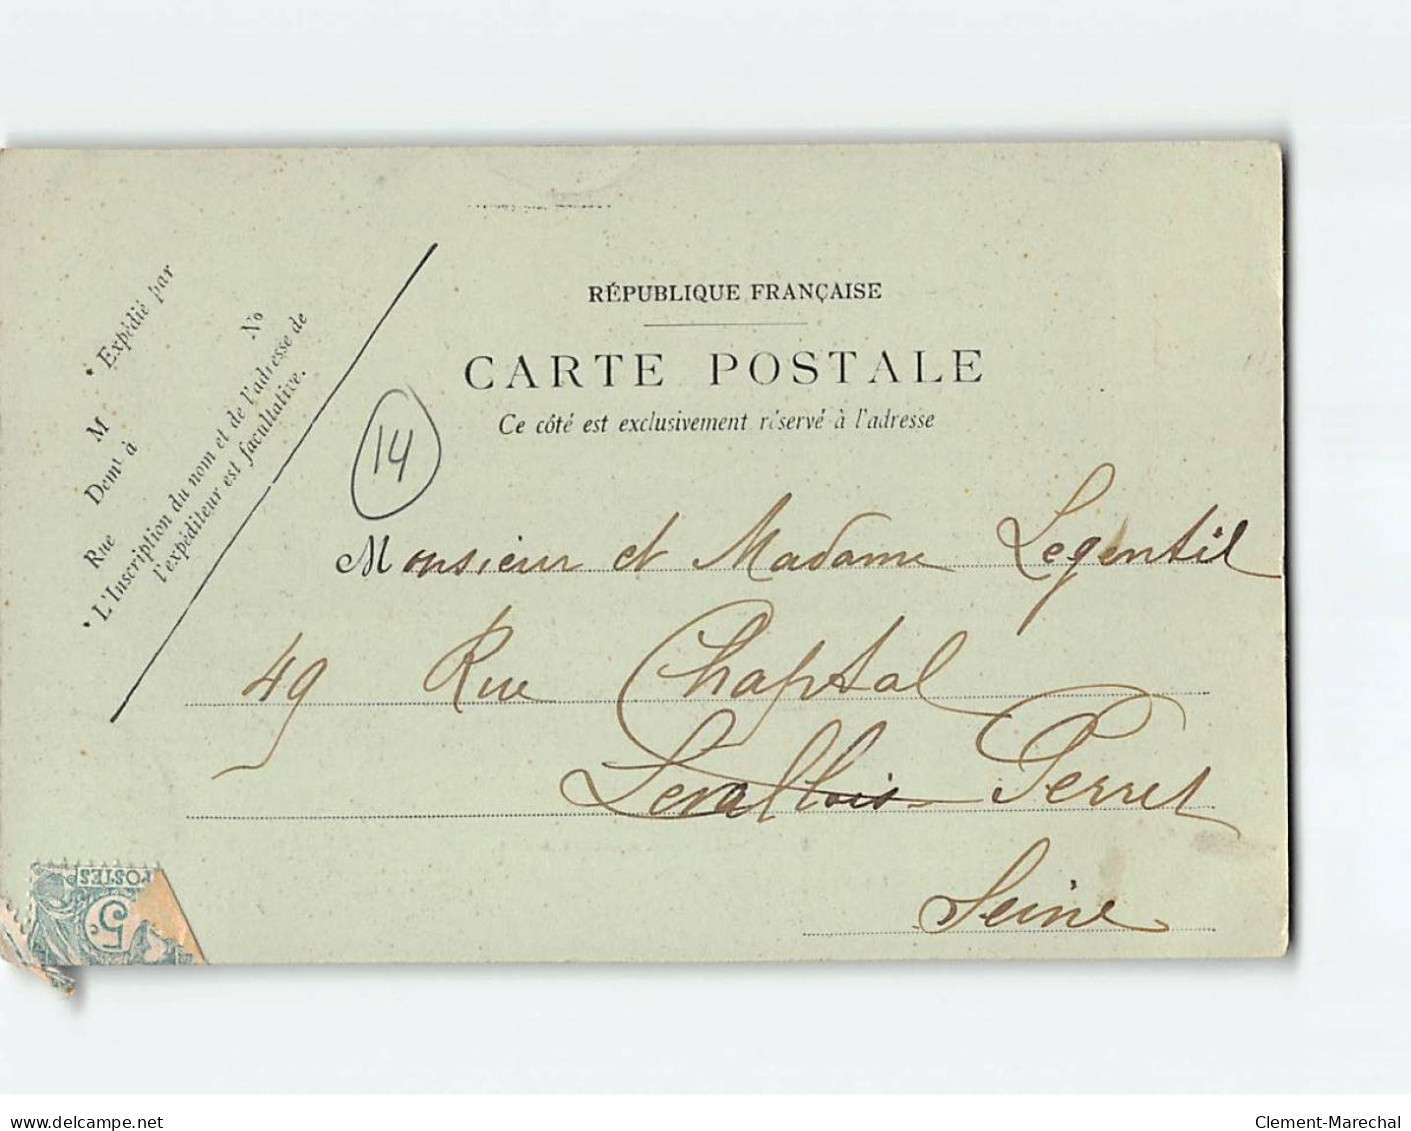 RÉPUBLIQUE FRANÇAISE
CARTE POSTALE
Ce côté est exclusivement réservé à l'adresse
* Expédié par
M
Demt à
Rue
No
* L'Inscription du nom et de l'adresse de
l'expéditeur est facultative.
14
Monsieur et Madame Legentil
49 Rue Chaptal
Levallois Perret
Seine
POSTES
5c
delcampe.net
Clement-Marechal